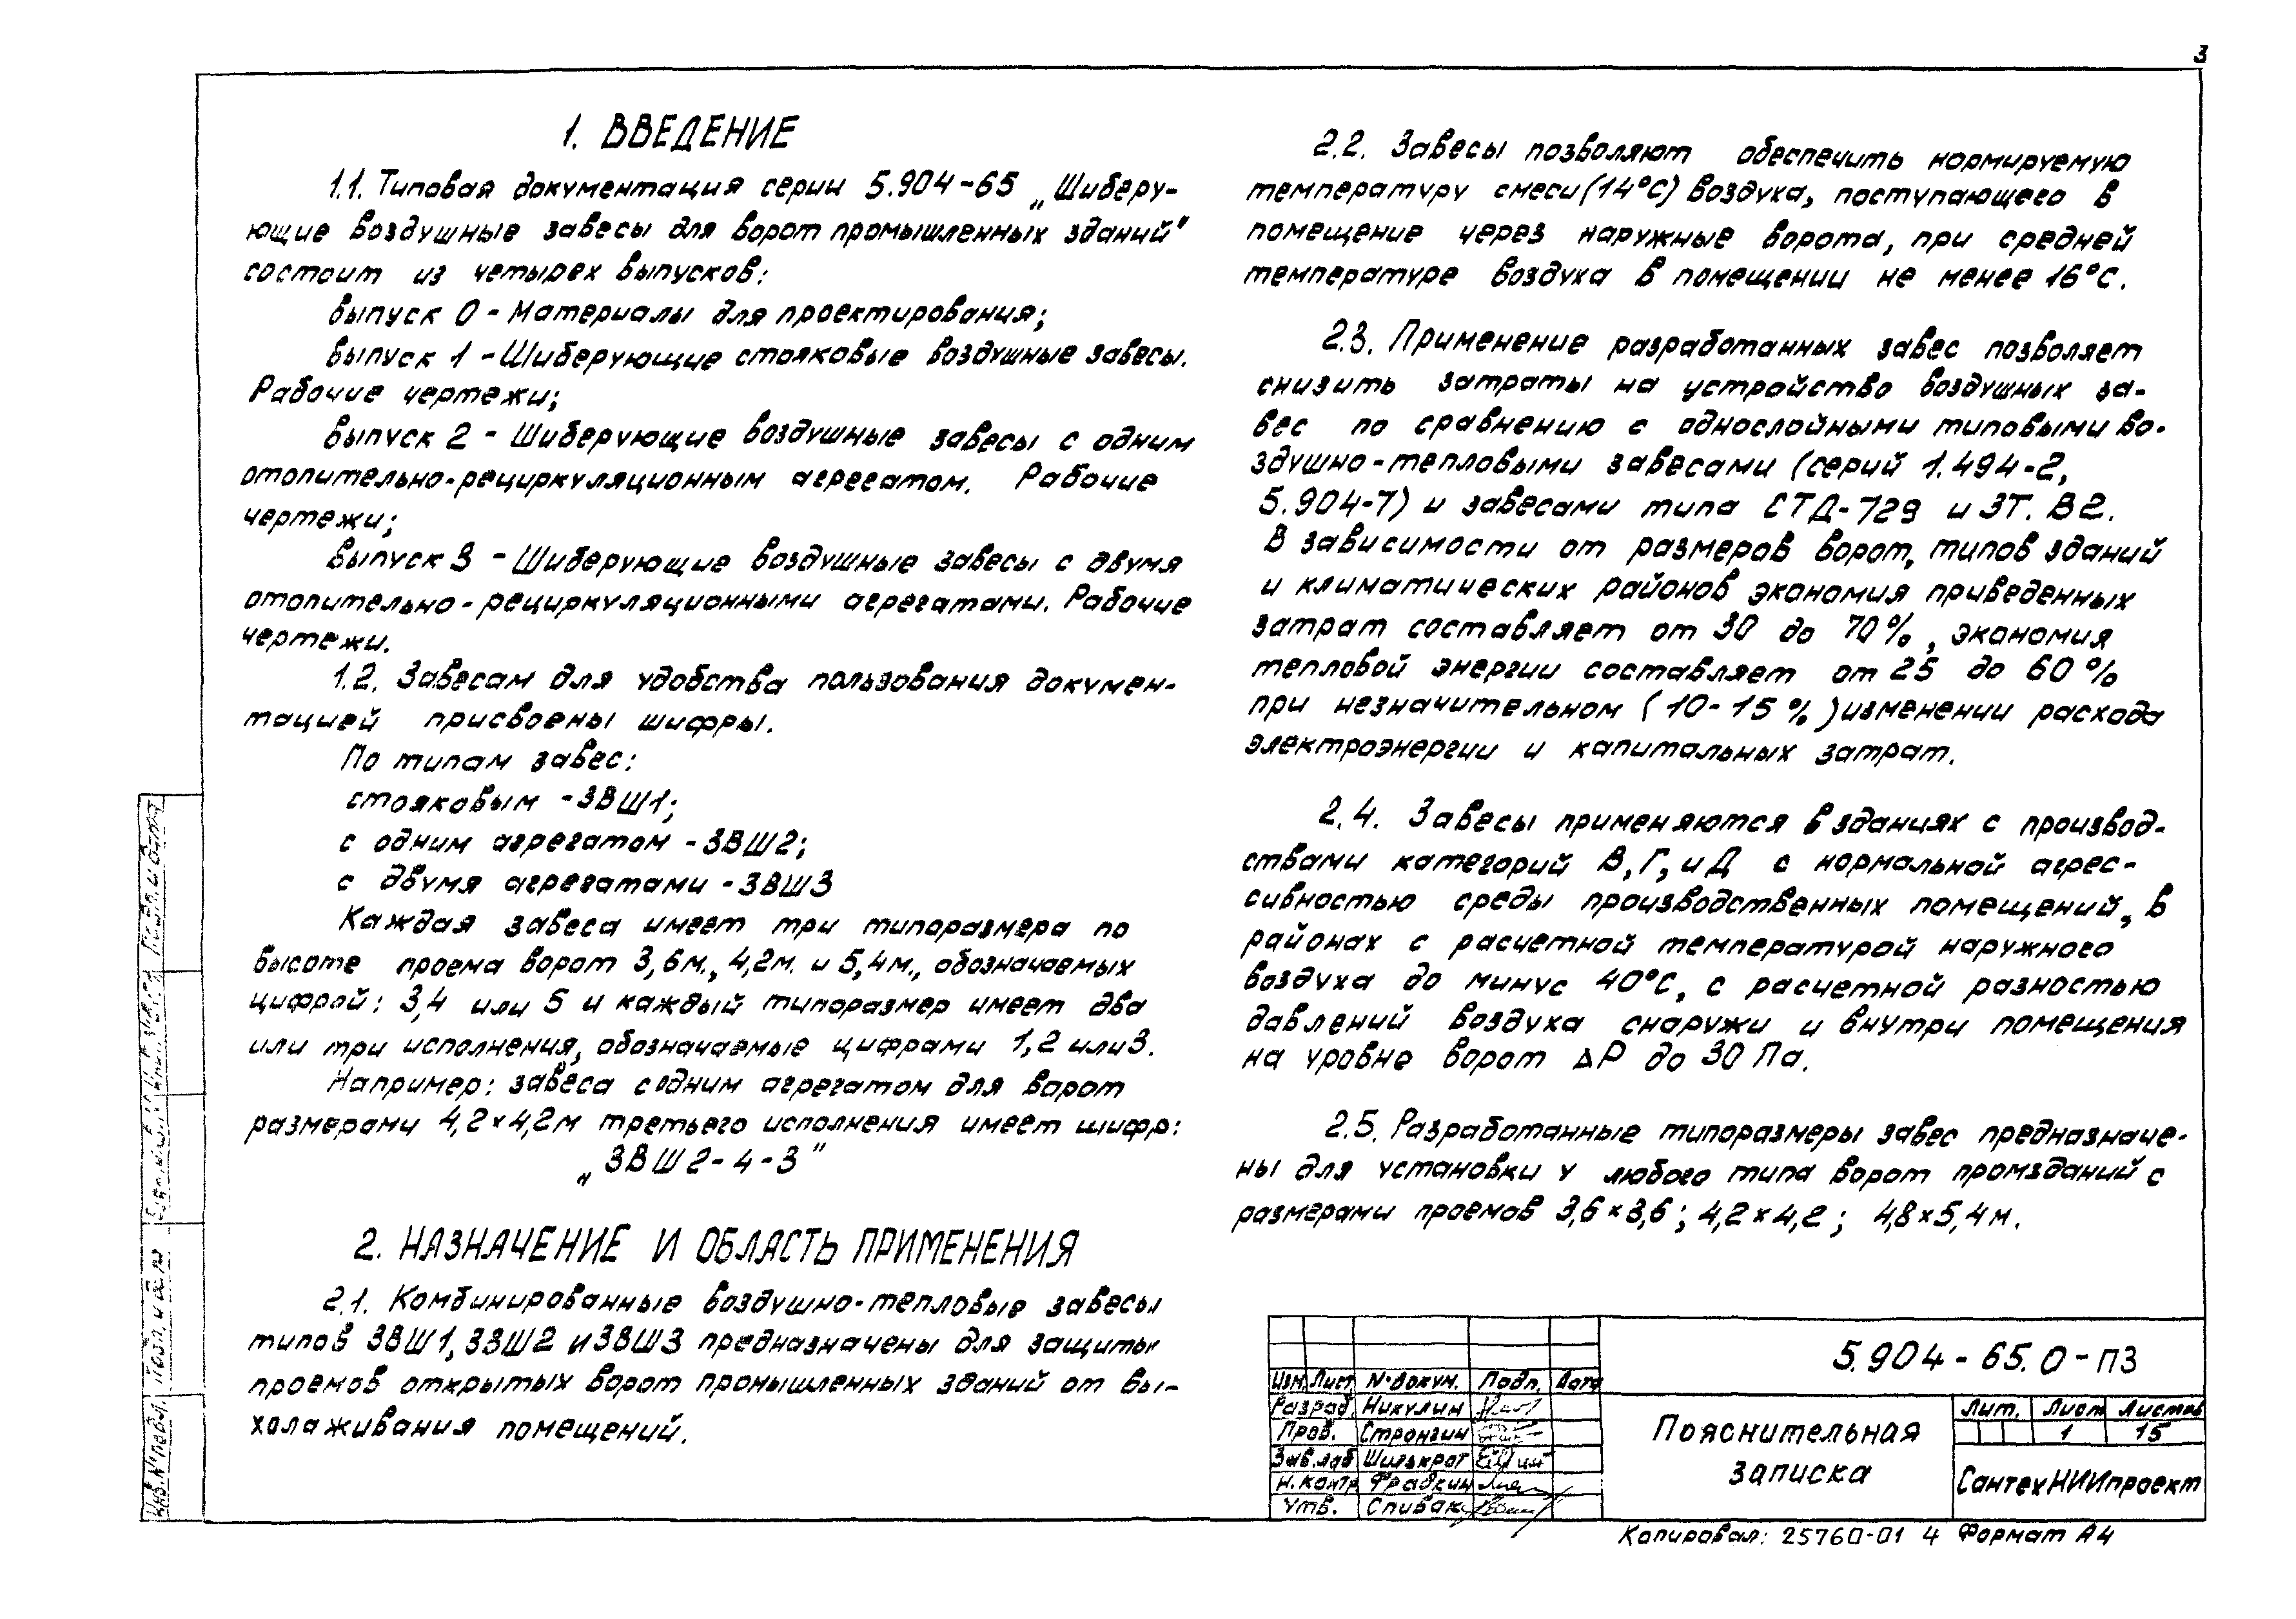 3
1. ВВЕДЕНИЕ
1.1. Типовая документация серии 5.904-65 „Шиберу-
ющие воздушные завесы для ворот промышленных зданий"
состоит из четырех выпусков:
выпуск 0 - Материалы для проектирования;
выпуск 1 - Шиберующие стояковые воздушные завесы.
Рабочие чертежи;
выпуск 2 - Шиберующие воздушные завесы с одним
отопительно-рециркуляционным агрегатом. Рабочие
чертежи;
выпуск 3 - Шиберующие воздушные завесы с двумя
отопительно-рециркуляционными агрегатами. Рабочие
чертежи.
1.2. Завесам для удобства пользования докумен-
тацией присвоены шифры.
По типам завес:
стояковым - ЗВШ1;
с одним агрегатом - ЗВШ2;
с двумя агрегатами - ЗВШ3
Каждая завеса имеет три типоразмера по
высоте проема ворот 3,6м., 4,2м. и 5,4м., обозначаемых
цифрой: 3,4 или 5 и каждый типоразмер имеет два
или три исполнения, обозначаемые цифрами 1,2 или 3.
Например: завеса с одним агрегатом для ворот
размерами 4,2×4,2м третьего исполнения имеет шифр:
„ЗВШ2-4-3"
2. НАЗНАЧЕНИЕ И ОБЛАСТЬ ПРИМЕНЕНИЯ
2.1. Комбинированные воздушно-тепловые завесы
типов ЗВШ1, ЗВШ2 и ЗВШ3 предназначены для защиты
проемов открытых ворот промышленных зданий от вы-
холаживания помещений.
2.2. Завесы позволяют обеспечить нормируемую
температуру смеси (14°С) воздуха, поступающего в
помещение через наружные ворота, при средней
температуре воздуха в помещении не менее 16°С.
2.3. Применение разработанных завес позволяет
снизить затраты на устройство воздушных за-
вес по сравнению с однослойными типовыми во-
здушно-тепловыми завесами (серий 1.494-2,
5.904-7) и завесами типа СТД-729 и ЗТ. В2.
В зависимости от размеров ворот, типов зданий
и климатических районов экономия приведенных
затрат составляет от 30 до 70%, экономия
тепловой энергии составляет от 25 до 60%
при незначительном (10-15%) изменении расхода
электроэнергии и капитальных затрат.
2.4. Завесы применяются в зданиях с производ-
ствами категорий В, Г, и Д с нормальной агрес-
сивностью среды производственных помещений, в
районах с расчетной температурой наружного
воздуха до минус 40°С, с расчетной разностью
давлений воздуха снаружи и внутри помещения
на уровне ворот ΔР до 30 Па.
2.5. Разработанные типоразмеры завес предназначе-
ны для установки у любого типа ворот промзданий с
размерами проемов 3,6×3,6; 4,2×4,2; 4,8×5,4м.
5.904-65.0-ПЗ
Изм. Лист № докум. Подп. Дата
Разраб. Никулин
Пров. Стронгин
Зав.лаб Шилькрот
Н.контр Фрадкин
Утв. Спивак
Пояснительная
записка
Лит. Лист Листов
1 15
СантехНИИпроект
Копировал: 25760-01 4 Формат А4
Инв.№ подл. Подп. и дата Взам. инв. № Инв. № дубл. Подп. и дата